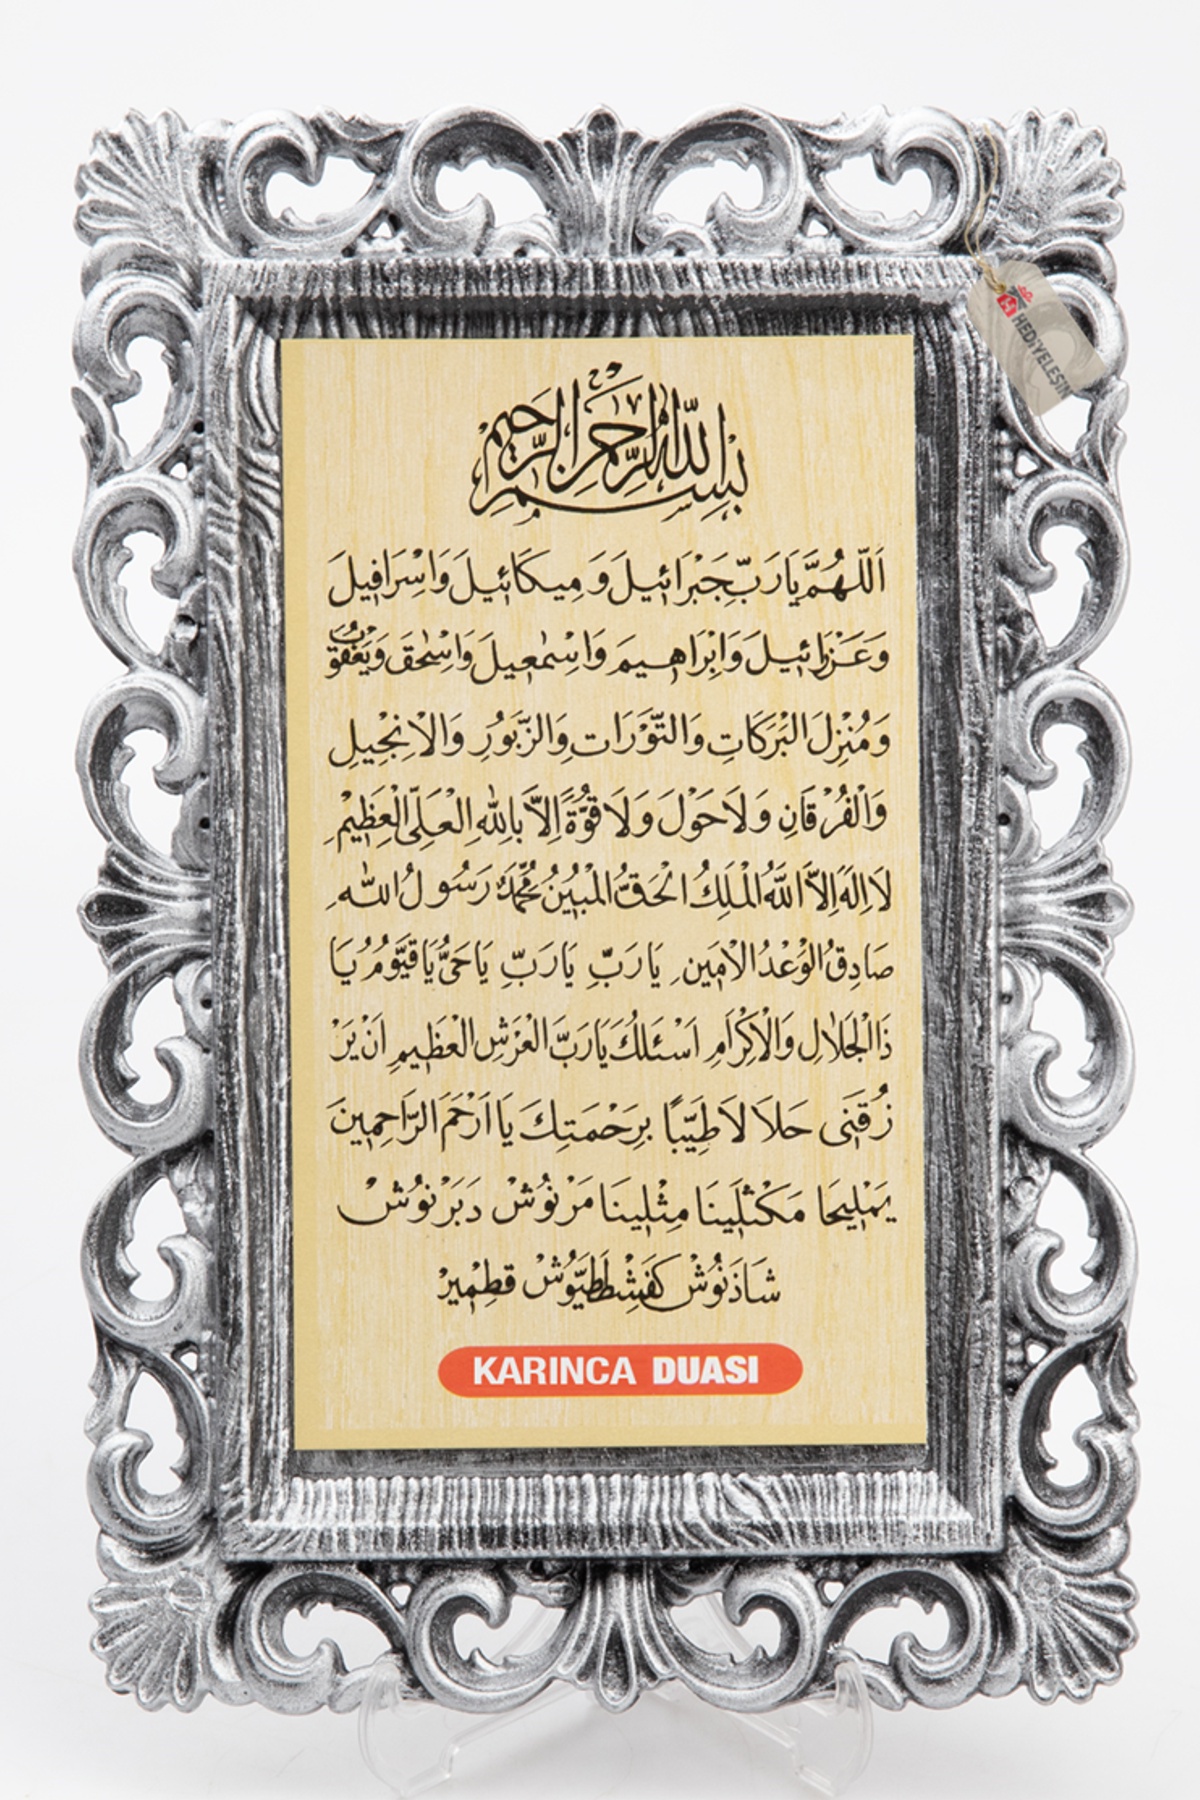 بسم الله الرحمن الرحيم
HEDİYELEŞİN
اَللّٰهُمَّ يَا رَبَّ جَبْرَائِيلَ وَ مِيكَائِيلَ وَاِسْرَافِيلَ
وَعَزْرَائِيلَ وَاِبْرَاهِيمَ وَاِسْمٰعِيلَ وَاِسْحٰقَ وَيَعْقُوبَ
وَمُنْزِلَ الْبَرَكَاتِ وَالتَّوْرَاتِ وَالزَّبُورِ وَالْاِنْجِيلِ
وَالْفُرْقَانِ وَلَا حَوْلَ وَلَا قُوَّةَ اِلَّا بِاللّٰهِ الْعَلِىِّ الْعَظِيمِ
لَا اِلٰهَ اِلَّا اللّٰهُ الْمَلِكُ الْحَقُّ الْمُبِينُ مُحَمَّدٌ رَسُولُ اللّٰهِ
صَادِقُ الْوَعْدُ الْاَمِينِ يَا رَبِّ يَا رَبِّ يَا حَىُّ يَا قَيُّومُ يَا
ذَا الْجَلَالِ وَالْاِكْرَامِ اَسْئَلُكَ يَا رَبَّ الْعَرْشِ الْعَظِيمِ اَنْ يَرْ
زُقَنِى حَلَالًا طَيِّبًا بِرَحْمَتِكَ يَا اَرْحَمَ الرَّاحِمِينَ
يَمْلِيحَا مَكْثَلِينَا مِثْلِينَا مَرْنُوشْ دَبَرْنُوشْ
شَاذَنُوشْ كَفَشْطَطَيُّوشْ قِطْمِيرْ
KARINCA DUASI